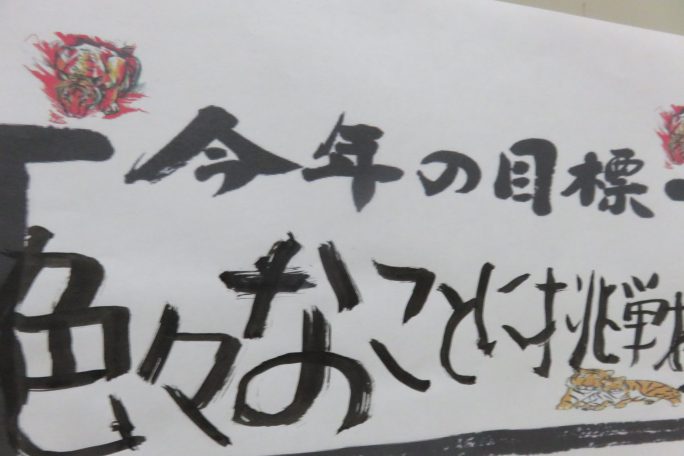 今年の目標
色々なことに挑戦